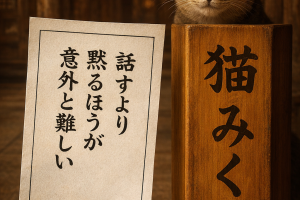 猫みく
話すより
黙るほうが
意外と難しい